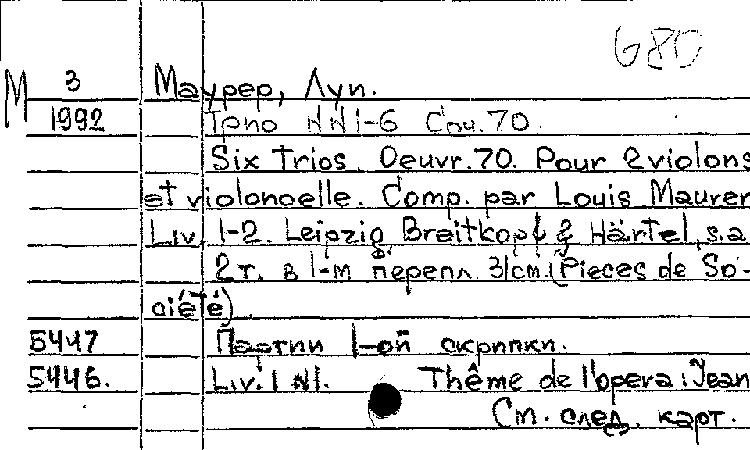 680
М 3 Маурер, Луи.
1992 Трио NN1-6 Соч.70.
Six Trios. Oeuvr.70. Pour 2 violons
et violoncelle. Comp. par Louis Maurer
Liv. 1-2. Leipzig Breitkopf & Härtel, s.a
2т. в 1-м перепл. 31см. (Pieces de So-
ciété)
5447 Партии 1-ой скрипки.
5446. Liv. 1 N1. Thême de l'opera: Jean
См. след. карт.